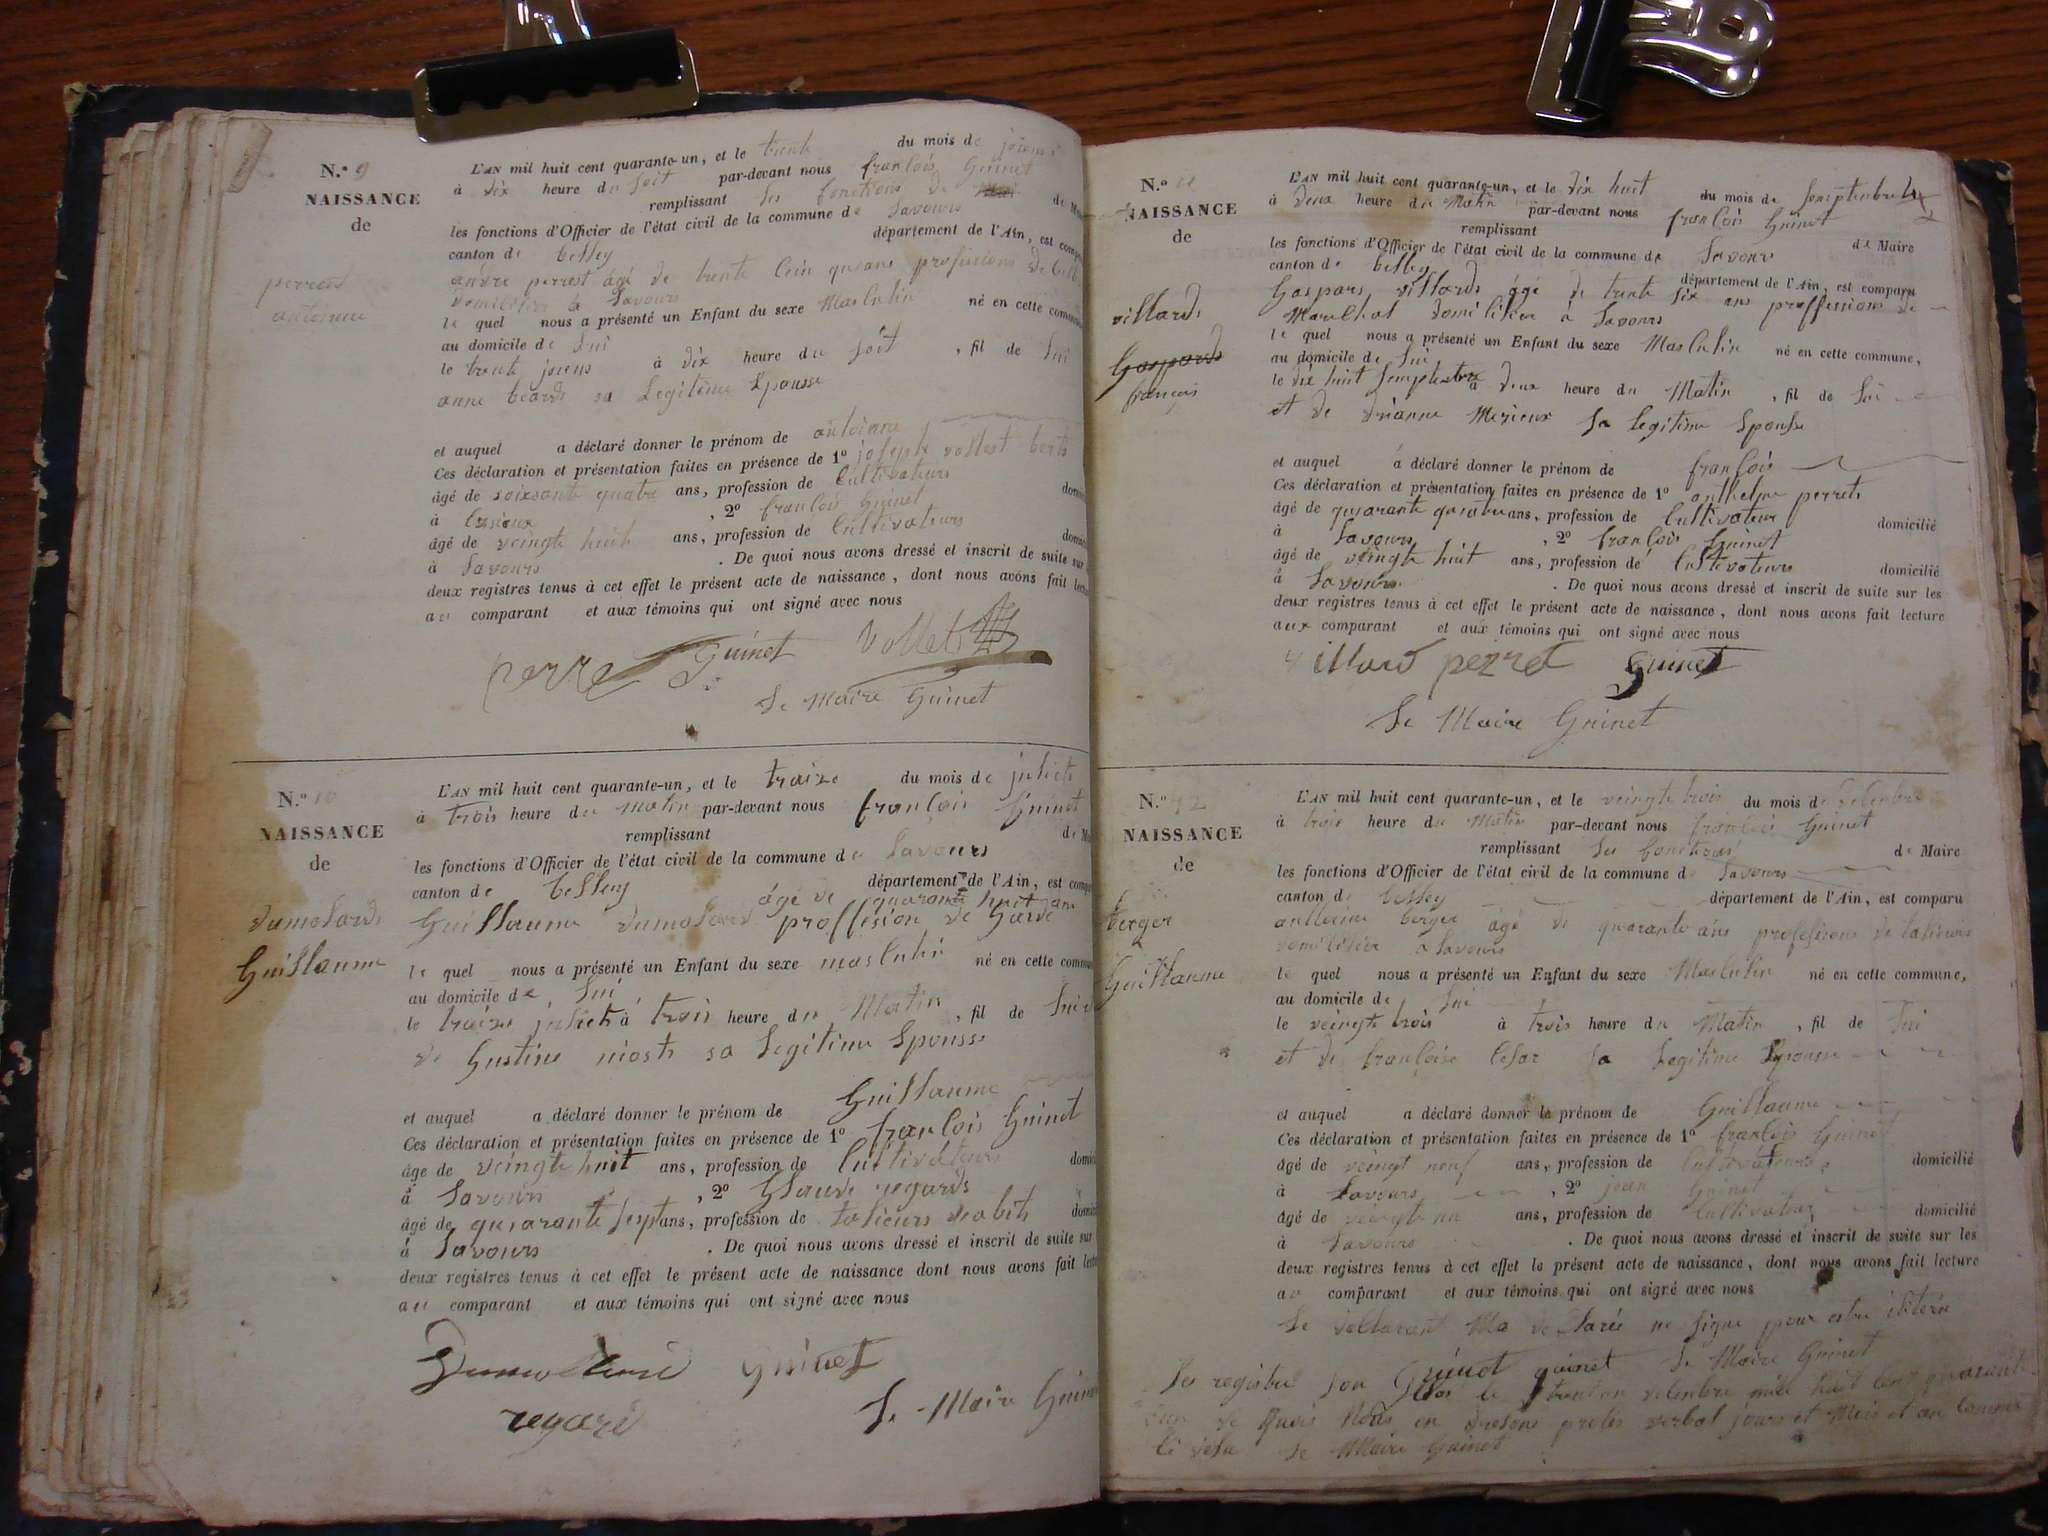 N.º 9
NAISSANCE
de
perrest
antoinne
L'AN mil huit cent quarante-un, et le trente du mois de joiens
à dix heure du soit par-devant nous françois Guinet
remplissant les fonctions de de
les fonctions d'Officier de l'état civil de la commune de Savours
canton de belley département de l'Ain, est
andre perrest âgé de trente profesions de
domicilier a Savours
le quel nous a présenté un Enfant du sexe Masculin né en cette
au domicile de Lui
le trente joiens à dix heure du soit , fil de Lui
anne sa Legitime Spousse
et auquel a déclaré donner le prénom de antoinne
Ces déclaration et présentation faites en présence de 1º joseph vollest
âgé de soixsante quatre ans, profession de Cultivateurs
à , 2º françois Guinet
âgé de veingte huit ans, profession de Cultivateurs
à Savours . De quoi nous avons dressé et inscrit de suite sur
deux registres tenus à cet effet le présent acte de naissance, dont nous avons fait
au comparant et aux témoins qui ont signé avec nous
perre Guinet Vollet
Le Maire Guinet
N.º 10
NAISSANCE
de
dumolard
Guillaume
L'AN mil huit cent quarante-un, et le traize du mois de juliets
à trois heure du Matin par-devant nous françois Guinet
remplissant de
les fonctions d'Officier de l'état civil de la commune de Savours
canton de belley département de l'Ain, est
âgé de quarante huit ans
Guillaume dumolard proffesion de Garde
le quel nous a présenté un Enfant du sexe masculin né en cette
au domicile de Lui
le traize juliets à trois heure du Matin , fil de Lui
de Gustine niosts sa Legitime Spousse
et auquel a déclaré donner le prénom de Guillaume
Ces déclaration et présentation faites en présence de 1º françois Guinet
âgé de veingte huit ans, profession de Cultivateurs
à Savours , 2º Glaude regards
âgé de quarante sept ans, profession de talieurs deabits
à Savours . De quoi nous avons dressé et inscrit de suite sur
deux registres tenus à cet effet le présent acte de naissance dont nous avons fait
au comparant et aux témoins qui ont signé avec nous
Dumolard Guinet
regard Le Maire Guinet
N.º 11
NAISSANCE
de
villards
Gaspards
françois
L'AN mil huit cent quarante-un, et le dix huit du mois de Semptembre
à deux heure du Matin par-devant nous françois Guinet
remplissant de Maire
les fonctions d'Officier de l'état civil de la commune de Savours
canton de belley département de l'Ain, est comparu
Gaspars villards âgé de trente six ans proffesions de
Marechal domicilier a Savours
le quel nous a présenté un Enfant du sexe Masculin né en cette commune,
au domicile de Lui
le dix huit Semptembre à deux heure du Matin , fil de Lui
et de drianne Merieux Sa legitime Spousse
et auquel à déclaré donner le prénom de françois
Ces déclaration et présentation faites en présence de 1º anthelme perrets
âgé de quarante quatre ans, profession de Cultivateur domicilié
à Savours , 2º françois Guinet
âgé de veingte huit ans, profession de Cultivateurs domicilié
à Savours . De quoi nous avons dressé et inscrit de suite sur les
deux registres tenus à cet effet le présent acte de naissance, dont nous avons fait lecture
aux comparant et aux témoins qui ont signé avec nous
villard perret Guinet
Le Maire Guinet
N.º 12
NAISSANCE
de
berger
Guillaume
L'AN mil huit cent quarante-un, et le veingte trois du mois de
à trois heure du Matin par-devant nous françois Guinet
remplissant Les fonctions de Maire
les fonctions d'Officier de l'état civil de la commune de Savours
canton de belley département de l'Ain, est comparu
antoine berger âgé de quarante ans profesions de talieurs
domicilier a Savours
le quel nous a présenté un Enfant du sexe Masculin né en cette commune,
au domicile de Lui
le veingte trois à trois heure du Matin , fil de Lui
et de françoise Cesar sa Legitime Spousse
et auquel a déclaré donner le prénom de Guillaume
Ces déclaration et présentation faites en présence de 1º françois Guinet
âgé de veingt neuf ans, profession de Cultivateurs domicilié
à Savours , 2º jean Guinet
âgé de veingte un ans, profession de Cultivateur domicilié
à Savours . De quoi nous avons dressé et inscrit de suite sur les
deux registres tenus à cet effet le présent acte de naissance, dont nous avons fait lecture
au comparant et aux témoins qui ont signé avec nous
Le declarant Ma declarée ne signe pour estre iliterée
Guinet guinet Le Maire Guinet
Les registre son le trente un mille huit cent quarante
un de quois Nous en dresons proses verbal jours et Mois et an
Le Maire Guinet